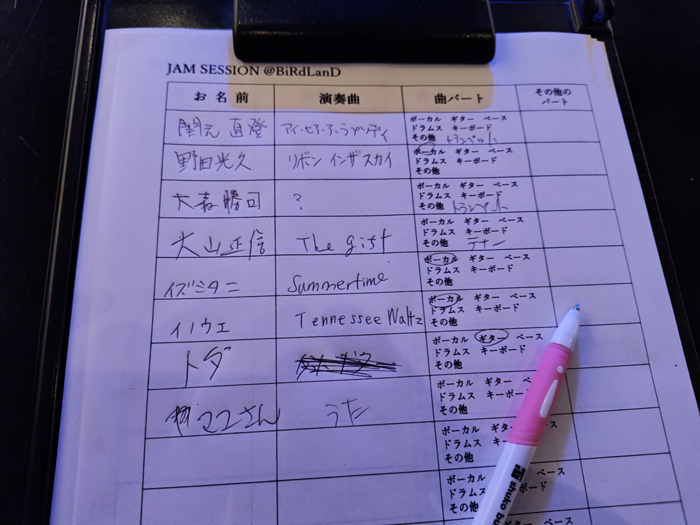 JAM SESSION @BiRdLanD
お名前 演奏曲 曲パート その他のパート
関元 直登 アイ・セアー・ラプソディ ボーカル ギター ベース
ドラムス キーボード
その他 トランペット
野田光久 リボン インザスカイ ボーカル ギター ベース
ドラムス キーボード
その他
大森勝司 ? ボーカル ギター ベース
ドラムス キーボード
その他 トランペット
大山正信 The gift ボーカル ギター ベース
ドラムス キーボード
その他 テナー
イズミタニ Summertime ボーカル ギター ベース
ドラムス キーボード
その他
イノウエ Tennessee Waltz ボーカル ギター ベース
ドラムス キーボード
その他
トダ ボーカル ギター ベース
ドラムス キーボード
その他
ママさん うた ボーカル ギター ベ
ドラムス キーボ
その他
ボーカル ギタ ース
ドラムス キー ード
その他
ボーカル ベース
ドラムス ボード
その他
shuko bu